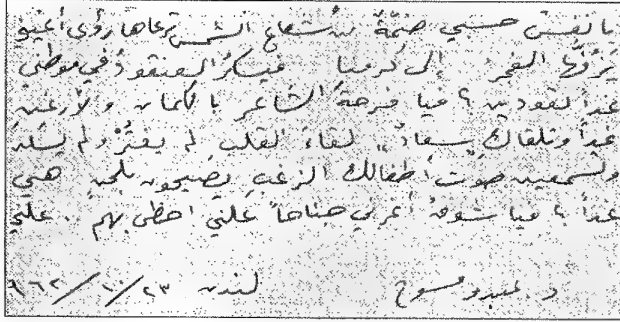 يا نفس حسبي ضمّة من شعاع الشمس ترعاها رؤى أعيني
يزفّها الفجر إلى كرمنا فيسكر العنقود في موطني
غداً تعودين؟ فيا فرحة الشاعر بالكمان والأرغن
غداً وتلقاك "سعاد" لقاء القلب لم يفتر ولم يسكن
وتسمعين صوت أطفالك الزغب يصيحون بلحن هني
غداً؟ فيا شوق أعرني جناحاً علني احظى بهم .. علني
د. عبدو مسوح لندن ٢٣/١٠/٩٦٢